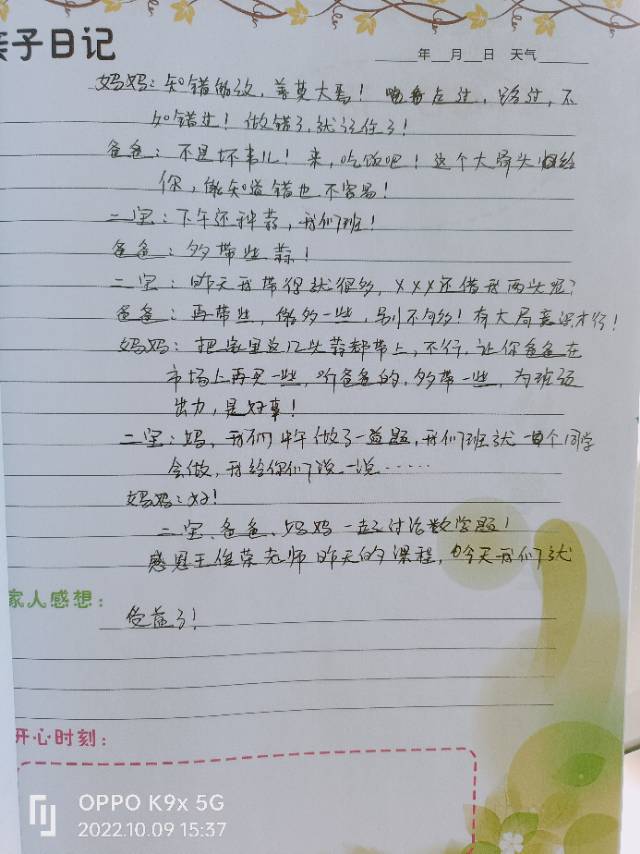 亲子日记
年 月 日 天气
妈妈：知错能改，善莫大焉！ 点过，路过，不
如错过！做错了就记住了！
爸爸：不是坏事儿！来，吃饭吧！这个大骨头归给
你，能知道错也不容易！
二宝：下午还种蒜，我们班！
爸爸：多带些蒜！
二宝：昨天我带得就很多，XXX还借我两头呢？
爸爸：再带些，做多一些，别不够！有大局意识才行！
妈妈：把家里这几头蒜都带上，不行，让你爸爸在
市场上再买一些，听爸爸的，多带一些，为班级
出力，是好事！
二宝：妈，我们中午做了一道题，我们班就一个同学
会做，我给你们说一说……
妈妈：好！
二宝、爸爸、妈妈一起讨论数学题！
感恩王俊荣老师昨天的课程，今天我们就
家人感想：
受益了！
开心时刻：
OPPO K9x 5G
2022.10.09 15:37